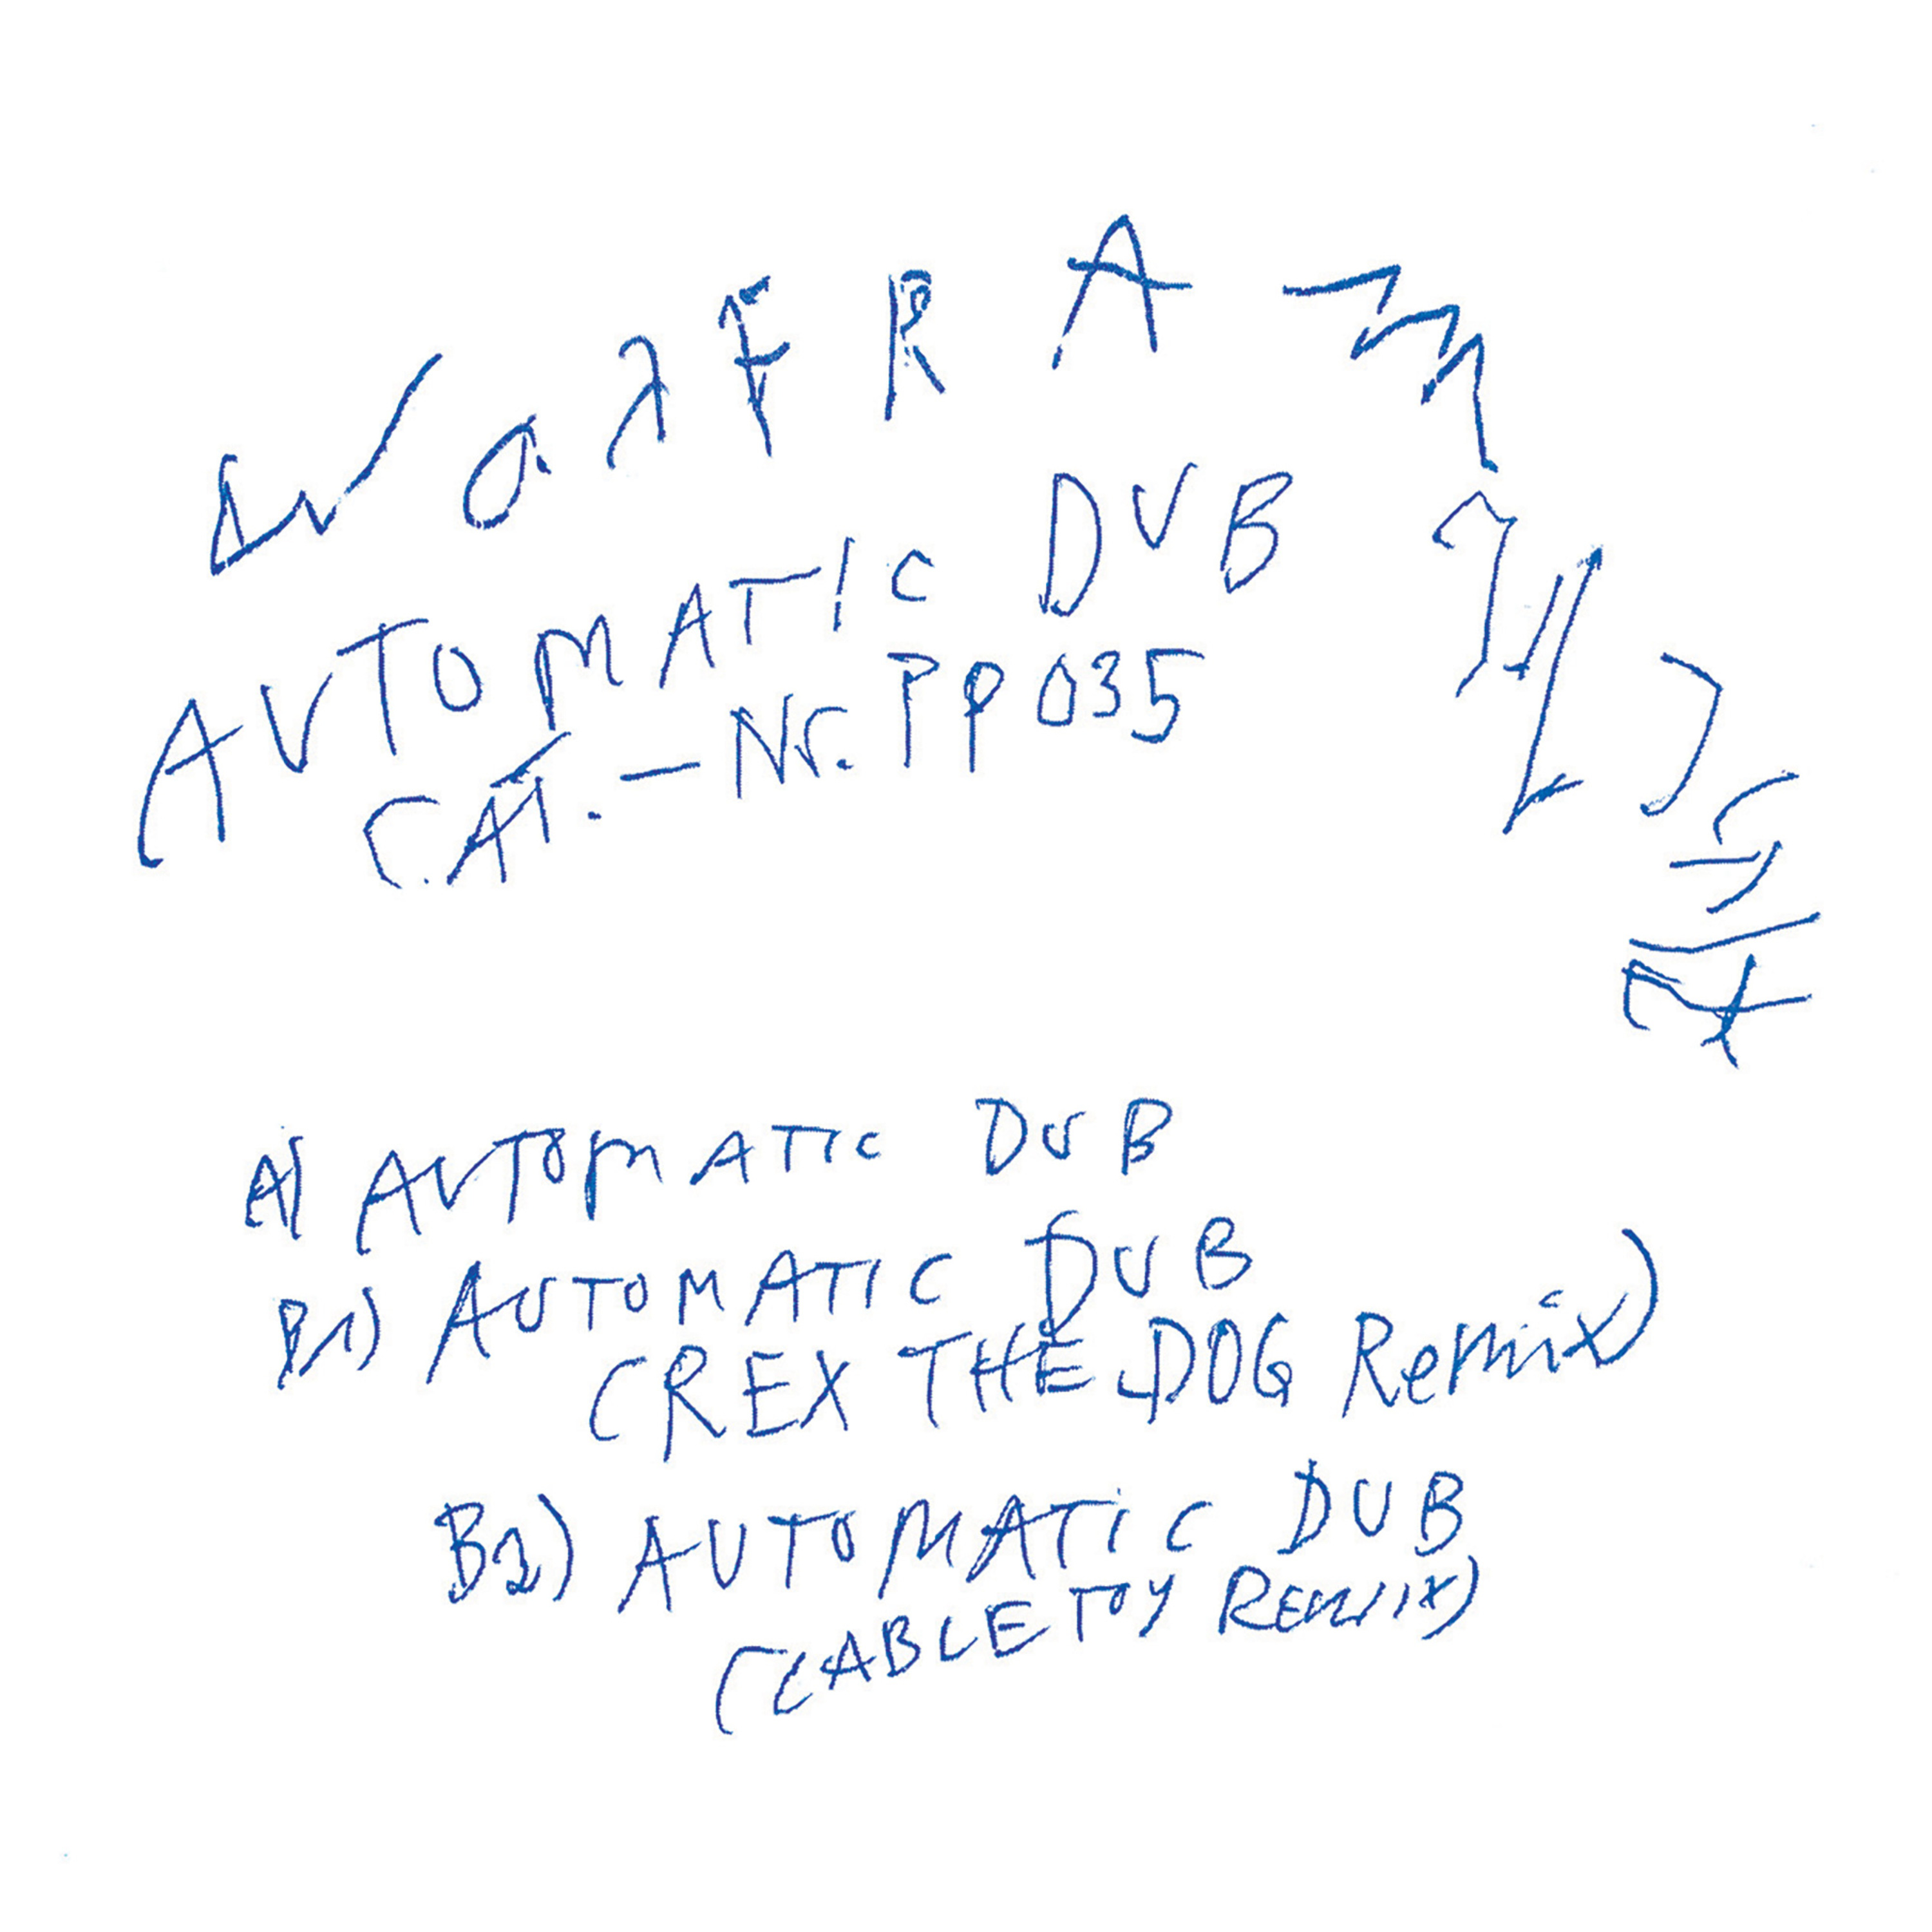 WOLFRAM
AUTOMATIC DUB
CAT.-Nr. PP035
A) AUTOMATIC DUB
B1) AUTOMATIC DUB
(REX THE DOG Remix)
B2) AUTOMATIC DUB
(CABLETOY REMIX)